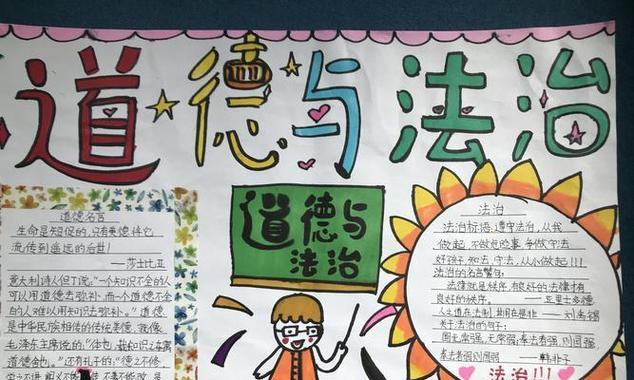 道德与法治
道德名言
生命是短促的,只有美德能它
流传到遥远的后世!
——莎士比亚
意大利诗人但丁说:“一个知识不全的人
可以用道德去弥补,而一个道德不全
的人难以用知识去弥补。”道德
是中华民族相传的传统美德,就像
毛泽东主席说的:
还有孔子的:“德之不修,
道德与
法治
法治
法治标语:遵守法治,从我
做起,不做危险事,争做守法
好孩子,知法,守法,从小做起!!!
法治的名言警句:
法律就是秩序,有良好的法律才有
良好的秩序。——亚里士多德
关于法治的句子:
国无常强,无常弱;奉法者强,则国强,
奉法者弱则国弱 ——韩非子
法治!!!